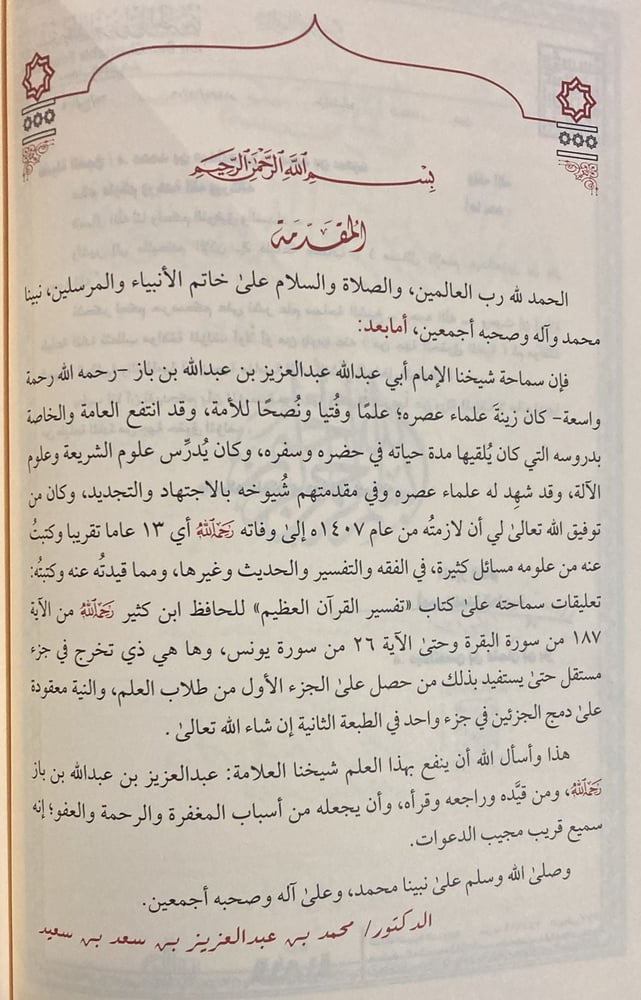 بِسْمِ اللَّهِ الرَّحْمَنِ الرَّحِيمِ
المُقَدِّمَة
الحمد لله رب العالمين، والصلاة والسلام علىٰ خاتم الأنبياء والمرسلين، نبينا
محمد وآله وصحبه أجمعين، أمابعد:
فإن سماحة شيخنا الإمام أبي عبدالله عبدالعزيز بن عبدالله بن باز –رحمه الله رحمة
واسعة– كان زينةَ علماء عصره؛ علمًا وفُتيا ونُصحًا للأمة، وقد انتفع العامة والخاصة
بدروسه التي كان يُلقيها مدة حياته في حضره وسفره، وكان يُدرِّس علوم الشريعة وعلوم
الآلة، وقد شهِد له علماء عصره وفي مقدمتهم شُيوخه بالاجتهاد والتجديد، وكان من
توفيق الله تعالىٰ لي أن لازمتُه من عام ١٤٠٧ه إلىٰ وفاته رَحِمَهُ اللَّهُ أي ١٣ عاما تقريبا وكتبتُ
عنه من علومه مسائل كثيرة، في الفقه والتفسير والحديث وغيرها، ومما قيدتُه عنه وكتبتُه:
تعليقات سماحته علىٰ كتاب «تفسير القرآن العظيم» للحافظ ابن كثير رَحِمَهُ اللَّهُ من الآية
١٨٧ من سورة البقرة وحتىٰ الآية ٢٦ من سورة يونس، وها هي ذي تخرج في جزء
مستقل حتىٰ يستفيد بذلك من حصل علىٰ الجزء الأول من طلاب العلم، والنية معقودة
علىٰ دمج الجزئين في جزء واحد في الطبعة الثانية إن شاء الله تعالىٰ .
هذا وأسأل الله أن ينفع بهذا العلم شيخنا العلامة: عبدالعزيز بن عبدالله بن باز
رَحِمَهُ اللَّهُ، ومن قيَّده وراجعه وقرأه، وأن يجعله من أسباب المغفرة والرحمة والعفو؛ إنه
سميع قريب مجيب الدعوات.
وصلىٰ الله وسلم علىٰ نبينا محمد، وعلىٰ آله وصحبه أجمعين.
الدكتور/ محمد بن عبدالعزيز بن سعد بن سعيد